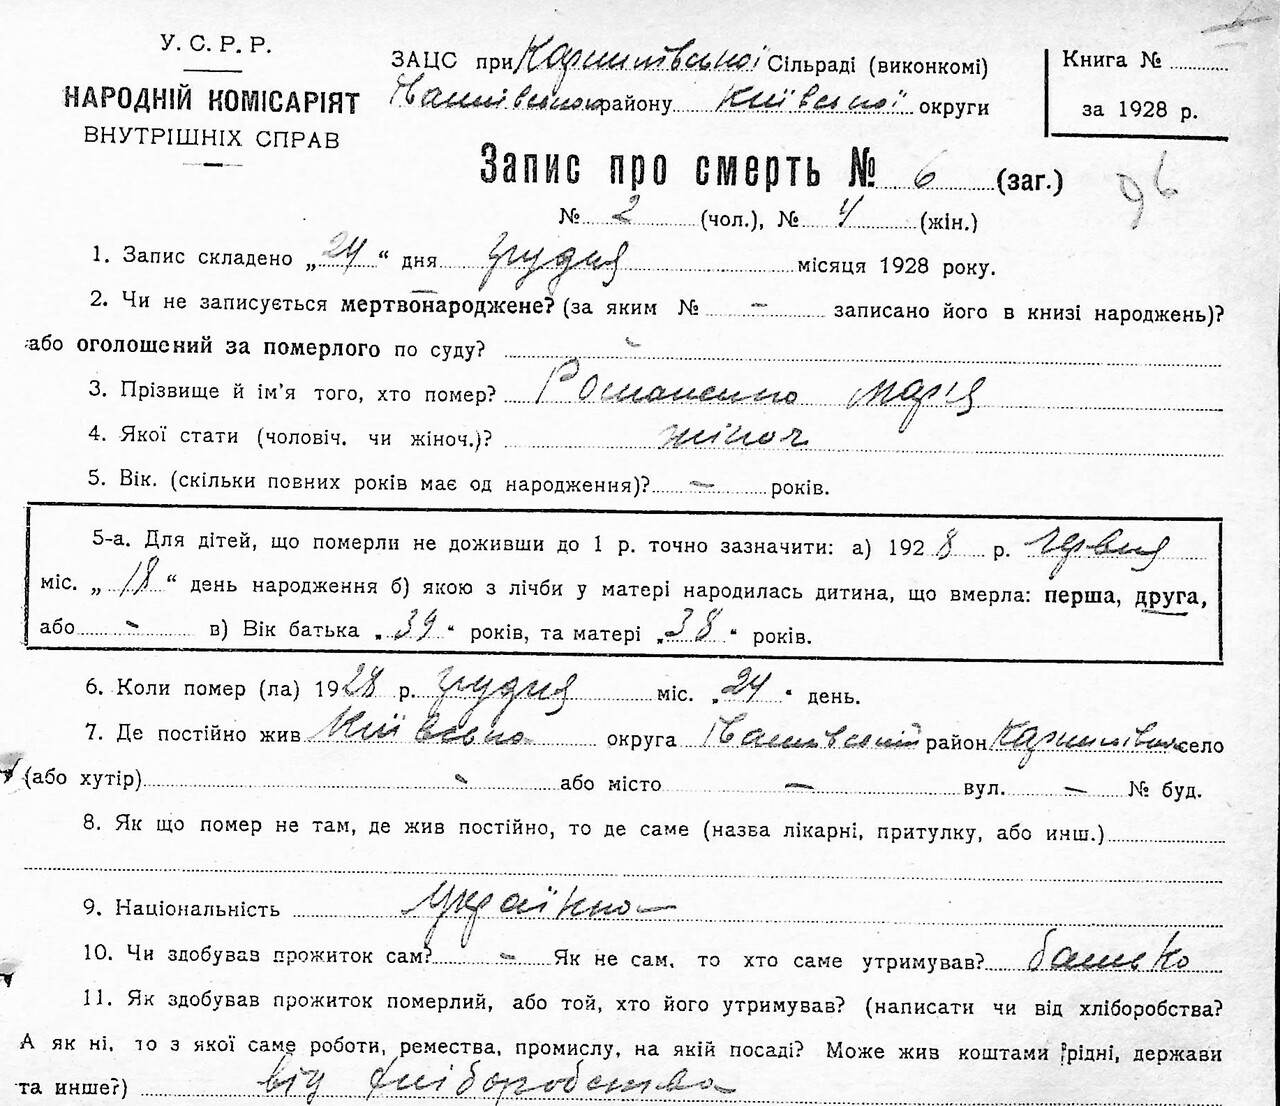 У. С. Р. Р.
НАРОДНІЙ КОМІСАРІЯТ
ВНУТРІШНІХ СПРАВ
ЗАЦС при Сільраді (виконкомі)
району Київської округи
Книга №
за 1928 р.
Запис про смерть № 6 (заг.)
96
№ 2 (чол.), № 4 (жін.)
1. Запис складено „24“ дня грудня місяця 1928 року.
2. Чи не записується мертвонароджене? (за яким № – записано його в книзі народжень)?
або оголошений за померлого по суду?
3. Прізвище й ім'я того, хто помер? Романенко Марія
4. Якої стати (чоловіч. чи жіноч.)? жіноч
5. Вік. (скільки повних років має од народження)? – років.
5-а. Для дітей, що померли не доживши до 1 р. точно зазначити: а) 1928 р. червня
міс. „18“ день народження б) якою з лічби у матері народилась дитина, що вмерла: перша, друга,
або - в) Вік батька „39“ років, та матері „38“ років.
6. Коли помер (ла) 1928 р. грудня міс. „24“ день.
7. Де постійно жив Київська округа район село
(або хутір) - або місто – вул. – № буд.
8. Як що помер не там, де жив постійно, то де саме (назва лікарні, притулку, або инш.)
9. Національність українка
10. Чи здобував прожиток сам? - Як не сам, то хто саме утримував? батько
11. Як здобував прожиток померлий, або той, хто його утримував? (написати чи від хліборобства?
А як ні, то з якої саме роботи, ремества, промислу, на якій посаді? Може жив коштами рідні, держави
та инше?) від хліборобства